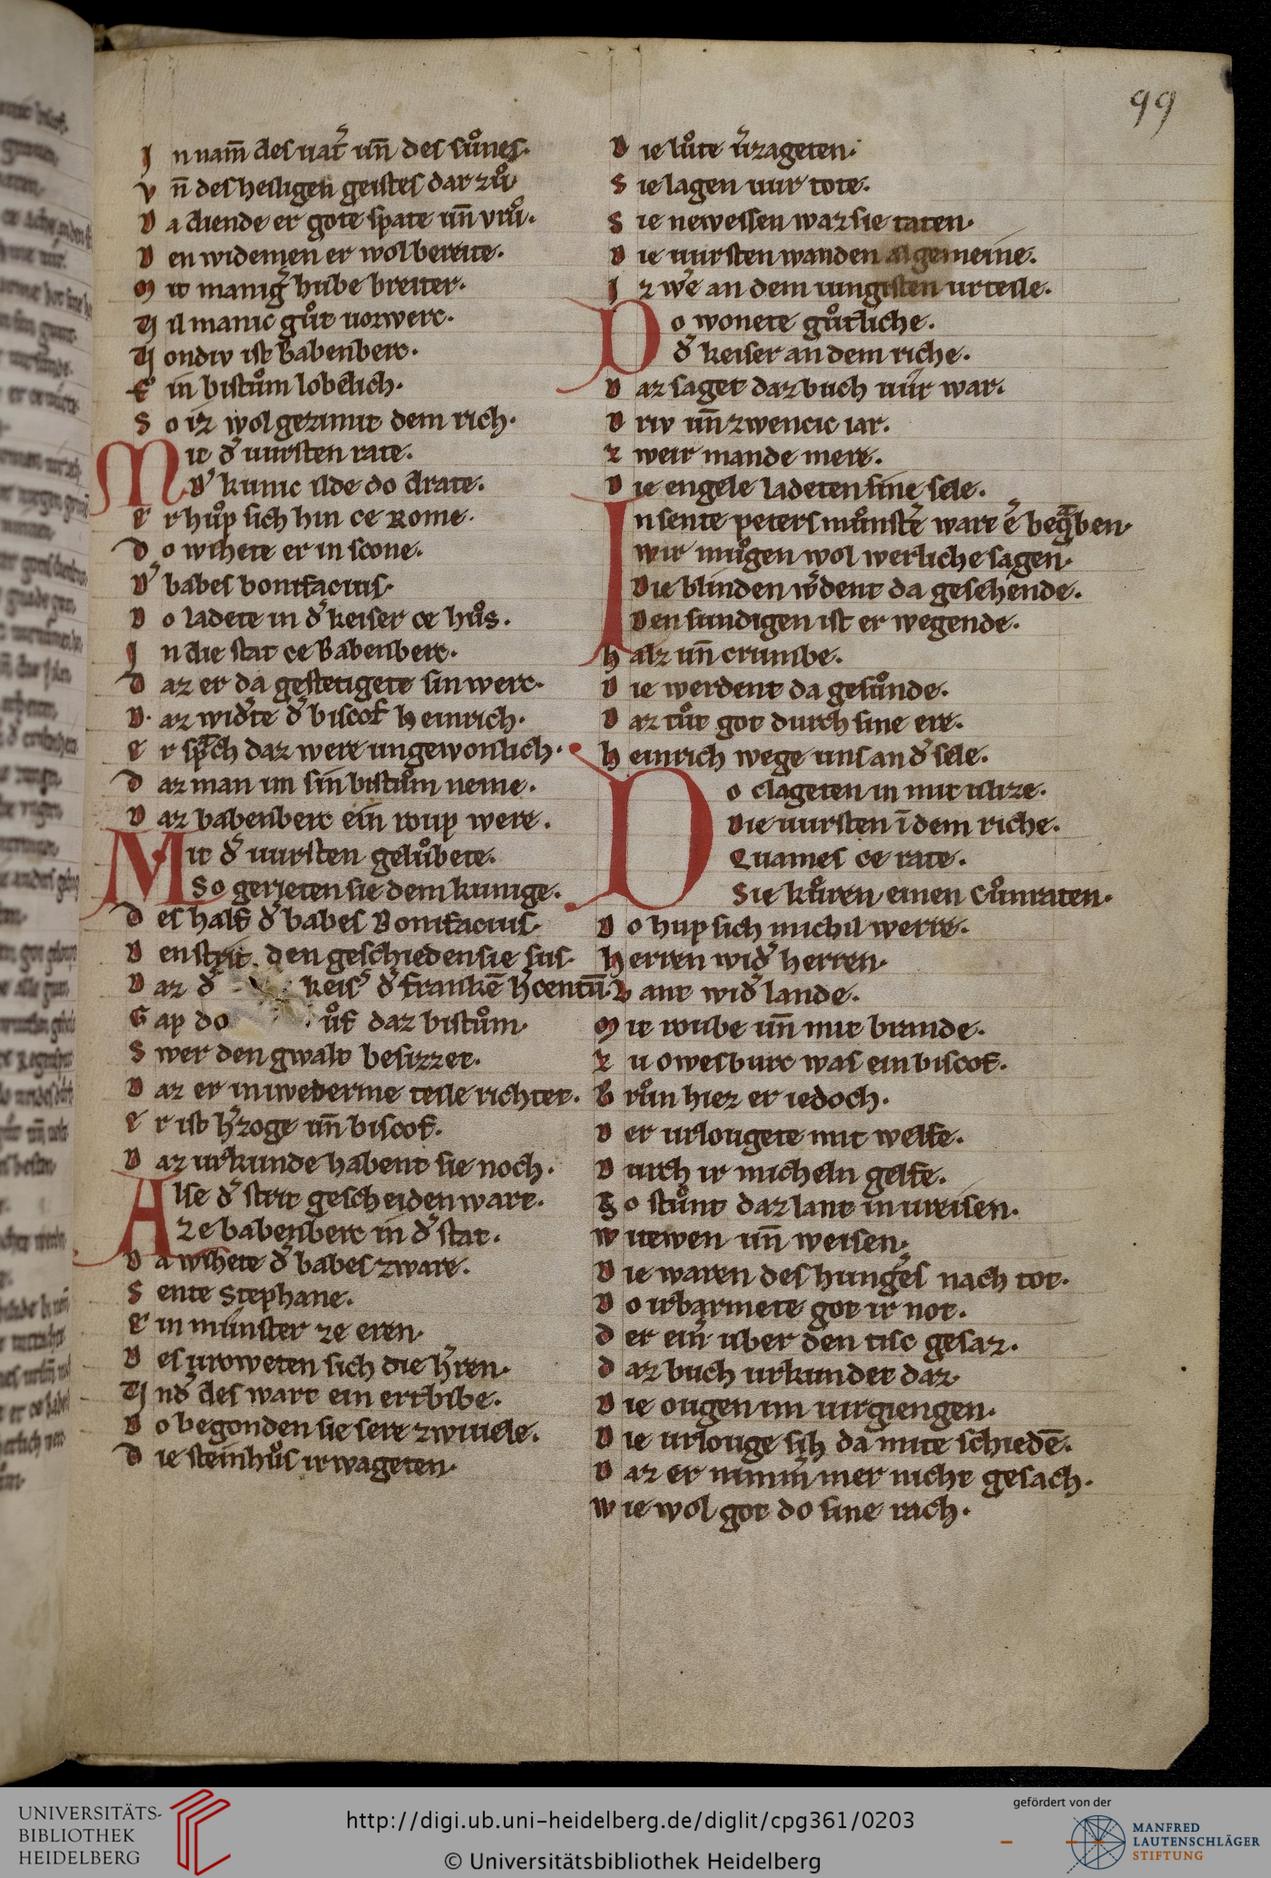 99
In nam̄ des uat̾ un̄ des suͦnes·
Vn̄ des heiligen geistes dar zuͦ·
Da diende er gote spate un̄ vruͦ·
Den widemen er wol bereite·
Mit manig̾ hube breiter·
Vil manic guͦt uorwerc·
Von div ist Babenberc·
Ein bistuͦm lobelich·
So iz wol gezimit dem rich·
Mit d̾ uursten rate·
D̾ kunic ilde do drate·
Er huͦp sich hin ce Rome·
Do wihete er in scone·
D̾ babes bonifacius·
Do ladete in d̾ keiser ce huͦs·
In die stat ce Babenberc·
Daz er da gestetigete sin werc·
Daz wid̾te d̾ biscof heinrich·
Er sp̾ch daz were ungewonlich·
Daz man im sin bistuͦm neme·
Daz babenberc ein roup were·
Mit d̾ uursten geluͦbete·
So gerieten sie dem kunige·
Des half d̾ babes Bonifacius·
Den strit den geschieden sie sus·
Daz d̾ keis̾ d̾ franken̄ h̾centuͦ·
Gap do uͦf daz bistuͦm·
Swer den gwalt besizzet·
Daz er in wederme teile richtet·
Er ist h̾zoge un̄ biscof·
Daz urkunde habent sie noch·
Alse d̾ strit gescheiden ware·
Ze babenberc in d̾ stat·
Da wihete d̾ babes zware·
Sente Stephane·
Ein munster ze eren·
Des uroweten sich die h̾ren·
Vnd̾ des wart ein ertbibe·
Do begonden sie sere zwiuele·
Die steinhuͦs irwageten·
Die luͦte u̾zageten·
Sie lagen uur tote·
Sie newessen waz sie taten·
Die uursten wanden al gemeine·
Iz we̾ an dem iungisten urteile·
Do wonete guͦtliche·
d̾ keiser an dem riche·
Daz saget daz buch uur war·
Driv un̄ zwencic iar·
Zweir mande mere·
Die engele ladeten sine sele·
In sente peters muͦnste̾ ware e̾ beg̾ben·
Wir muͦgen wol werliche sagen·
Die blinden w̾dent da gesehende·
Den sundigen ist er wegende·
Halz un̄ crumbe·
Die werdent da gesuͦnde·
Daz tuͦt got durch sine ere·
Heinrich wege uns an d̾ sele·
Do clageten in mit ulize·
Die uursten ī dem riche·
Quames ce rate·
Sie kuͦren einen Cuͦnraten·
Do hup sich michil werre·
Herren wid̾ herren·
Lant wid̾ lande·
Mit roube un̄ mit brande·
Zu owesburc was ein biscof·
Bruͦn hiez er iedoch·
Der urlougete mit welfe·
Durch ir micheln gelfe·
So stuͦnt daz lant in ureisen·
Witewen un̄ weisen·
Die waren des hung̾es nach tot·
Do irbarmete got ir not·
Der ein̾ uber den tisc gesaz·
Daz buch urkundet daz·
Die ougen im uirgiengen·
Die urlouge sih da mite schieden̄·
Daz er nimm̾ mer nicht gesach·
Wie wol got do sine rach·
UNIVERSITÄTS-
BIBLIOTHEK
HEIDELBERG
http://digi.ub.uni-heidelberg.de/diglit/cpg361/0203
© Universitätsbibliothek Heidelberg
gefördert von der
MANFRED
LAUTENSCHLÄGER
STIFTUNG